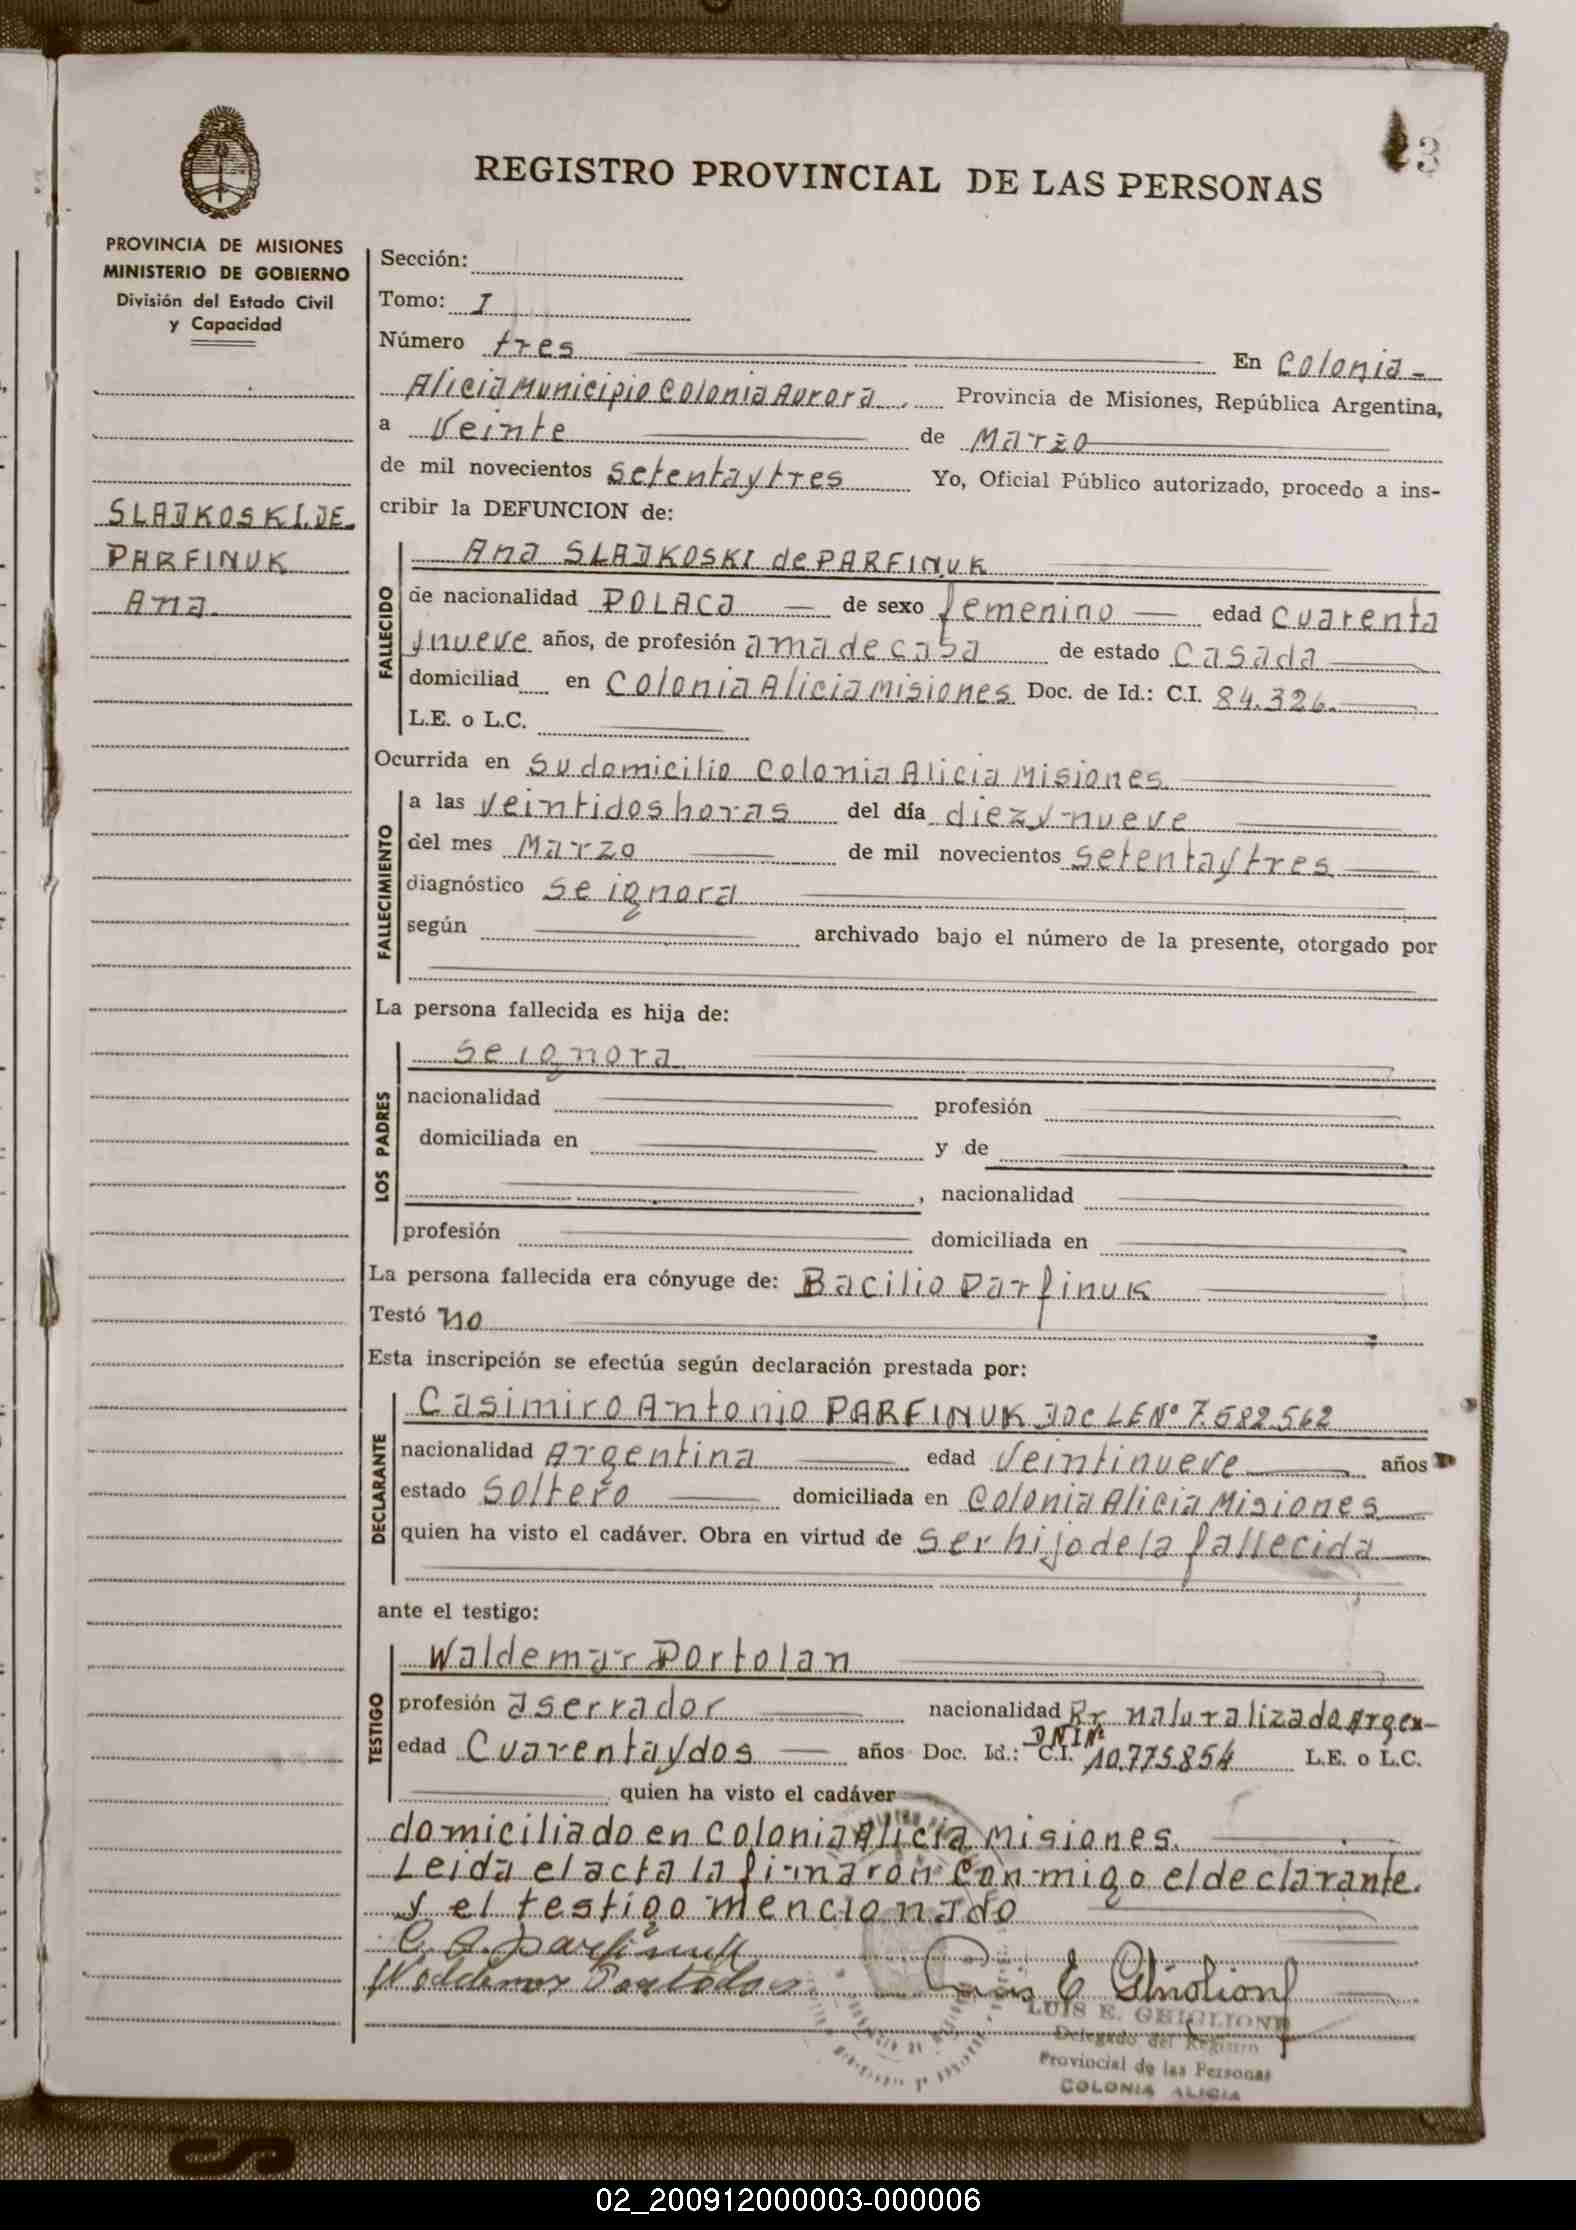 3
REGISTRO PROVINCIAL DE LAS PERSONAS
PROVINCIA DE MISIONES
MINISTERIO DE GOBIERNO
División del Estado Civil
y Capacidad
SLAJKOSKI.DE.
PARFINUK
Ana
Sección:
Tomo: I
Número tres En Colonia-
Alicia Municipio Colonia Aurora. Provincia de Misiones, República Argentina,
a Veinte de Marzo
de mil novecientos setenta y tres Yo, Oficial Público autorizado, procedo a ins-
cribir la DEFUNCION de:
Ana SLAJKOSKI de PARFINUK
FALLECIDO
de nacionalidad POLACA de sexo femenino edad cuarenta
y nueve años, de profesión ama de casa de estado Casada
domiciliad en Colonia Alicia Misiones Doc. de Id.: C.I. 84.326.
L.E. o L.C.
Ocurrida en su domicilio Colonia Alicia Misiones
FALLECIMIENTO
a las veintidos horas del día diez y nueve
del mes Marzo de mil novecientos setenta y tres
diagnóstico se ignora
según archivado bajo el número de la presente, otorgado por
La persona fallecida es hija de:
LOS PADRES
se ignora
nacionalidad profesión
domiciliada en y de
, nacionalidad
profesión domiciliada en
La persona fallecida era cónyuge de: Bacilio Parfinuk
Testó no
Esta inscripción se efectúa según declaración prestada por:
DECLARANTE
Casimiro Antonio PARFINUK Doc LE Nº 7.582.562
nacionalidad Argentina edad Veintinueve años
estado Soltero domiciliada en Colonia Alicia Misiones
quien ha visto el cadáver. Obra en virtud de ser hijo de la fallecida
ante el testigo:
TESTIGO
Waldemar Portolan
profesión aserrador nacionalidad Br. naturalizado Argen-
edad Cuarenta y dos años Doc. Id.: C.I. DNI Nº 10.775.854 L.E. o L.C.
quien ha visto el cadáver
domiciliado en Colonia Alicia Misiones.
Leida el acta la firmaron con migo el declarante.
y el testigo mencionado
C. A. Parfinuk
Waldemar Portolan
LUIS E. GHIGLIONE
Delegado del Registro
Provincial de las Personas
COLONIA ALICIA
02_200912000003-000006